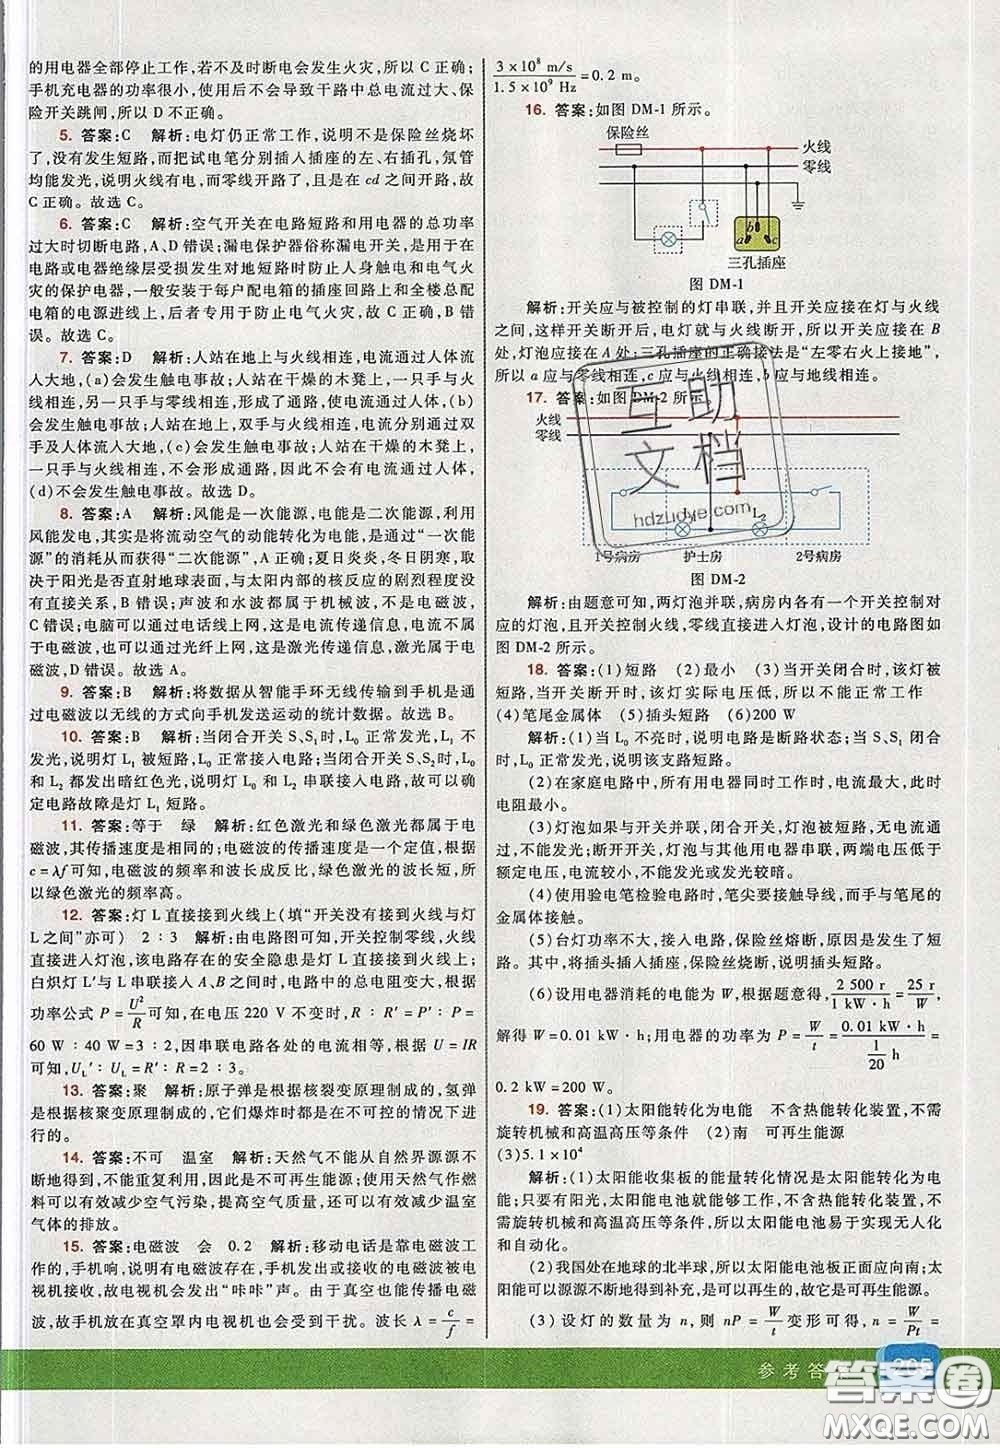 的用电器全部停止工作,若不及时断电会发生火灾,所以 C 正确;
手机充电器的功率很小,使用后不会导致干路中总电流过大、保
险开关跳闸,所以 D 不正确。
5. 答案:C 解析:电灯仍正常工作,说明不是保险丝烧坏
了,没有发生短路,而把试电笔分别插入插座的左、右插孔,氖管
均能发光,说明火线有电,而零线开路了,且是在 cd 之间开路,故
C 正确。故选 C。
6. 答案:C 解析:空气开关在电路短路和用电器的总功率
过大时切断电路,A、D 错误;漏电保护器俗称漏电开关,是用于在
电路或电器绝缘层受损发生对地短路时防止人身触电和电气火
灾的保护电器,一般安装于每户配电箱的插座回路上和全楼总配
电箱的电源进线上,后者专用于防止电气火灾,C 正确,B 错
误。故选 C。
7. 答案:D 解析:人站在地上与火线相连,电流通过人体流
入大地,(a)会发生触电事故;人站在干燥的木凳上,一只手与火
线相连,一只手与零线相连,形成了通路,使电流通过人体,(b)
会发生触电事故;人站在地上,双手与火线相连,电流会通过双
手及人体流入大地,(c)会发生触电事故;人站在干燥的木凳上,
一只手与火线相连,不会形成通路,因此不会有电流通过人体,
(d)不会发生触电事故。故选 D。
8. 答案:A 解析:风能是一次能源,电能是二次能源,利用
风能发电,其实是将流动空气的动能转化为电能,是通过“一次能
源”的消耗从而获得“二次能源”,A 正确;夏日炎炎,冬日阴寒,
取决于阳光是否直射地球表面,与太阳内部的核反应的剧烈程度
没有直接关系,B 错误;声波和水波都属于机械波,不属于电磁波,
C 错误;电脑可以通过电话线上网,这是电流传递信息,电流不
属于电磁波,也可以通过光纤上网,这是激光传递信息,激光属于电
磁波,D 错误。故选 A。
9. 答案:B 解析:将数据从智能手环无线传输到手机是通
过电磁波以无线的方式向手机发送运动的统计数据。故选 B。
10. 答案:B 解析:当闭合开关 S、S₁时,L₀ 正常发光,L₁ 不
发光,说明灯 L₁ 被短路,L₀ 正常接入电路;当闭合开关 S、S₂时,L₀
和 L₂ 都发出暗红色光,说明灯 L₀ 和 L₂ 串联接入电路,故可以确
定电路故障是灯 L₁ 短路。
11. 答案:等于 绿 解析:红色激光和绿色激光都属于电
磁波,其传播速度是相同的;电磁波的传播速度是一个定值,根据
c=λf 可知,电磁波的频率和波长成反比,绿色激光的波长短,所
以绿色激光的频率高。
12. 答案:灯 L 直接接到火线上(填“开关没有接到火线与灯
L 之间”亦可) 2∶3 解析:由电路图可知,开关控制零线,火线
直接进入灯泡,该电路存在的安全隐患是灯 L 直接接到火线上;
白炽灯 L′与 L 串联接入 A、B 之间时,电路中的总电阻变大,根据
功率公式 P=U²/R 可知,在电压 220 V 不变时,R∶R′=P′∶P=
60 W∶40 W=3∶2,因串联电路各处的电流相等,根据 U=IR
可知,U_L′∶U_L=R′∶R=2∶3。
13. 答案:聚 解析:原子弹是根据核裂变原理制成的,氢弹
是根据核聚变原理制成的,它们爆炸时都是在不可控的情况下进
行的。
14. 答案:不可 温室 解析:天然气不能从自然界源源不
断地得到,不能重复利用,因此是不可再生能源;使用天然气作燃
料可以有效减少空气污染,提高空气质量,还可以有效减少温室
气体的排放。
15. 答案:电磁波 会 0.2 解析:移动电话是靠电磁波工
作的,手机响,说明有电磁波存在,所以产生的电磁波被旁边的电
视机接收,故电视机会发出“咔咔”声;由于真空也能传播电磁
波,故手机放在真空罩内电视机也会受到干扰。波长 λ=c/f=
3×10⁸ m/s / 1.5×10⁹ Hz =0.2 m。
16. 答案:如图 DM-1 所示。
保险丝
火线
零线
a b c
三孔插座
图 DM-1
解析:开关应与被控制的灯串联,并且开关应接在灯与火线
之间,这样开关断开后,电灯就与火线断开,所以开关应接在 B
处,灯泡应接在 A 处;三孔插座的正确接法是“左零右火上接地”,
所以 a 应与零线相连,c 应与火线相连,b 应与地线相连。
17. 答案:如图 DM-2 所示。
火线
零线
L₂
1号病房 护士房 2号病房
图 DM-2
解析:由题意可知,两灯泡并联,病房内各有一个开关控制对
应的灯泡,且开关控制火线,零线直接进入灯泡,设计的电路图如
图 DM-2 所示。
18. 答案:(1)短路 (2)最小 (3)当开关闭合时,该灯被
短路,当开关断开时,该灯实际电压低,所以不能正常工作
(4)笔尾金属体 (5)插头短路 (6)200 W
解析:(1)当 L₀ 不亮时,说明电路是断路状态;当 S、S₁ 闭合
时,L₀ 正常发光,说明该支路短路。
(2)在家庭电路中,所有用电器同时工作时,电流最大,此时
电阻最小。
(3)灯泡如果与开关并联,闭合开关,灯泡被短路,无电流通
过,不能发光;断开开关,灯泡与其他用电器串联,两端电压低于
额定电压,电流较小,不能发光或发光较暗。
(4)使用验电笔检验电路时,笔尖要接触导线,而手与笔尾的
金属体接触。
(5)台灯功率不大,接入电路,保险丝熔断,原因是发生了短
路。其中,将插头插入插座,保险丝烧断,说明插头短路。
(6)设用电器消耗的电能为 W,根据题意得,2 500 r / 1 kW·h = 25 r / W,
解得 W=0.01 kW·h,用电器的功率为 P=W/t=0.01 kW·h / (1/20 h)=
0.2 kW=200 W。
19. 答案:(1)太阳能转化为电能 不含热能转化装置,不需
旋转机械和高温高压等条件 (2)南 可再生能源
(3)5.1×10⁴
解析:(1)太阳能收集板的能量转化情况是太阳能转化为电
能;只要有阳光,太阳能电池就能够工作,不含热能转化装置,不
需旋转机械和高温高压等条件,所以太阳能电池易于实现无人化
和自动化。
(2)我国处在地球的北半球,所以太阳能电池板正面应向南;
太阳能可以源源不断地得到补充,是可以再生的,故它是可再生能源。
(3)设灯的数量为 n,则 nP=W/t变形可得,n=W/Pt=
参考答
205
互助
文档
hdzuoye.com
答案圈
MXQE.COM